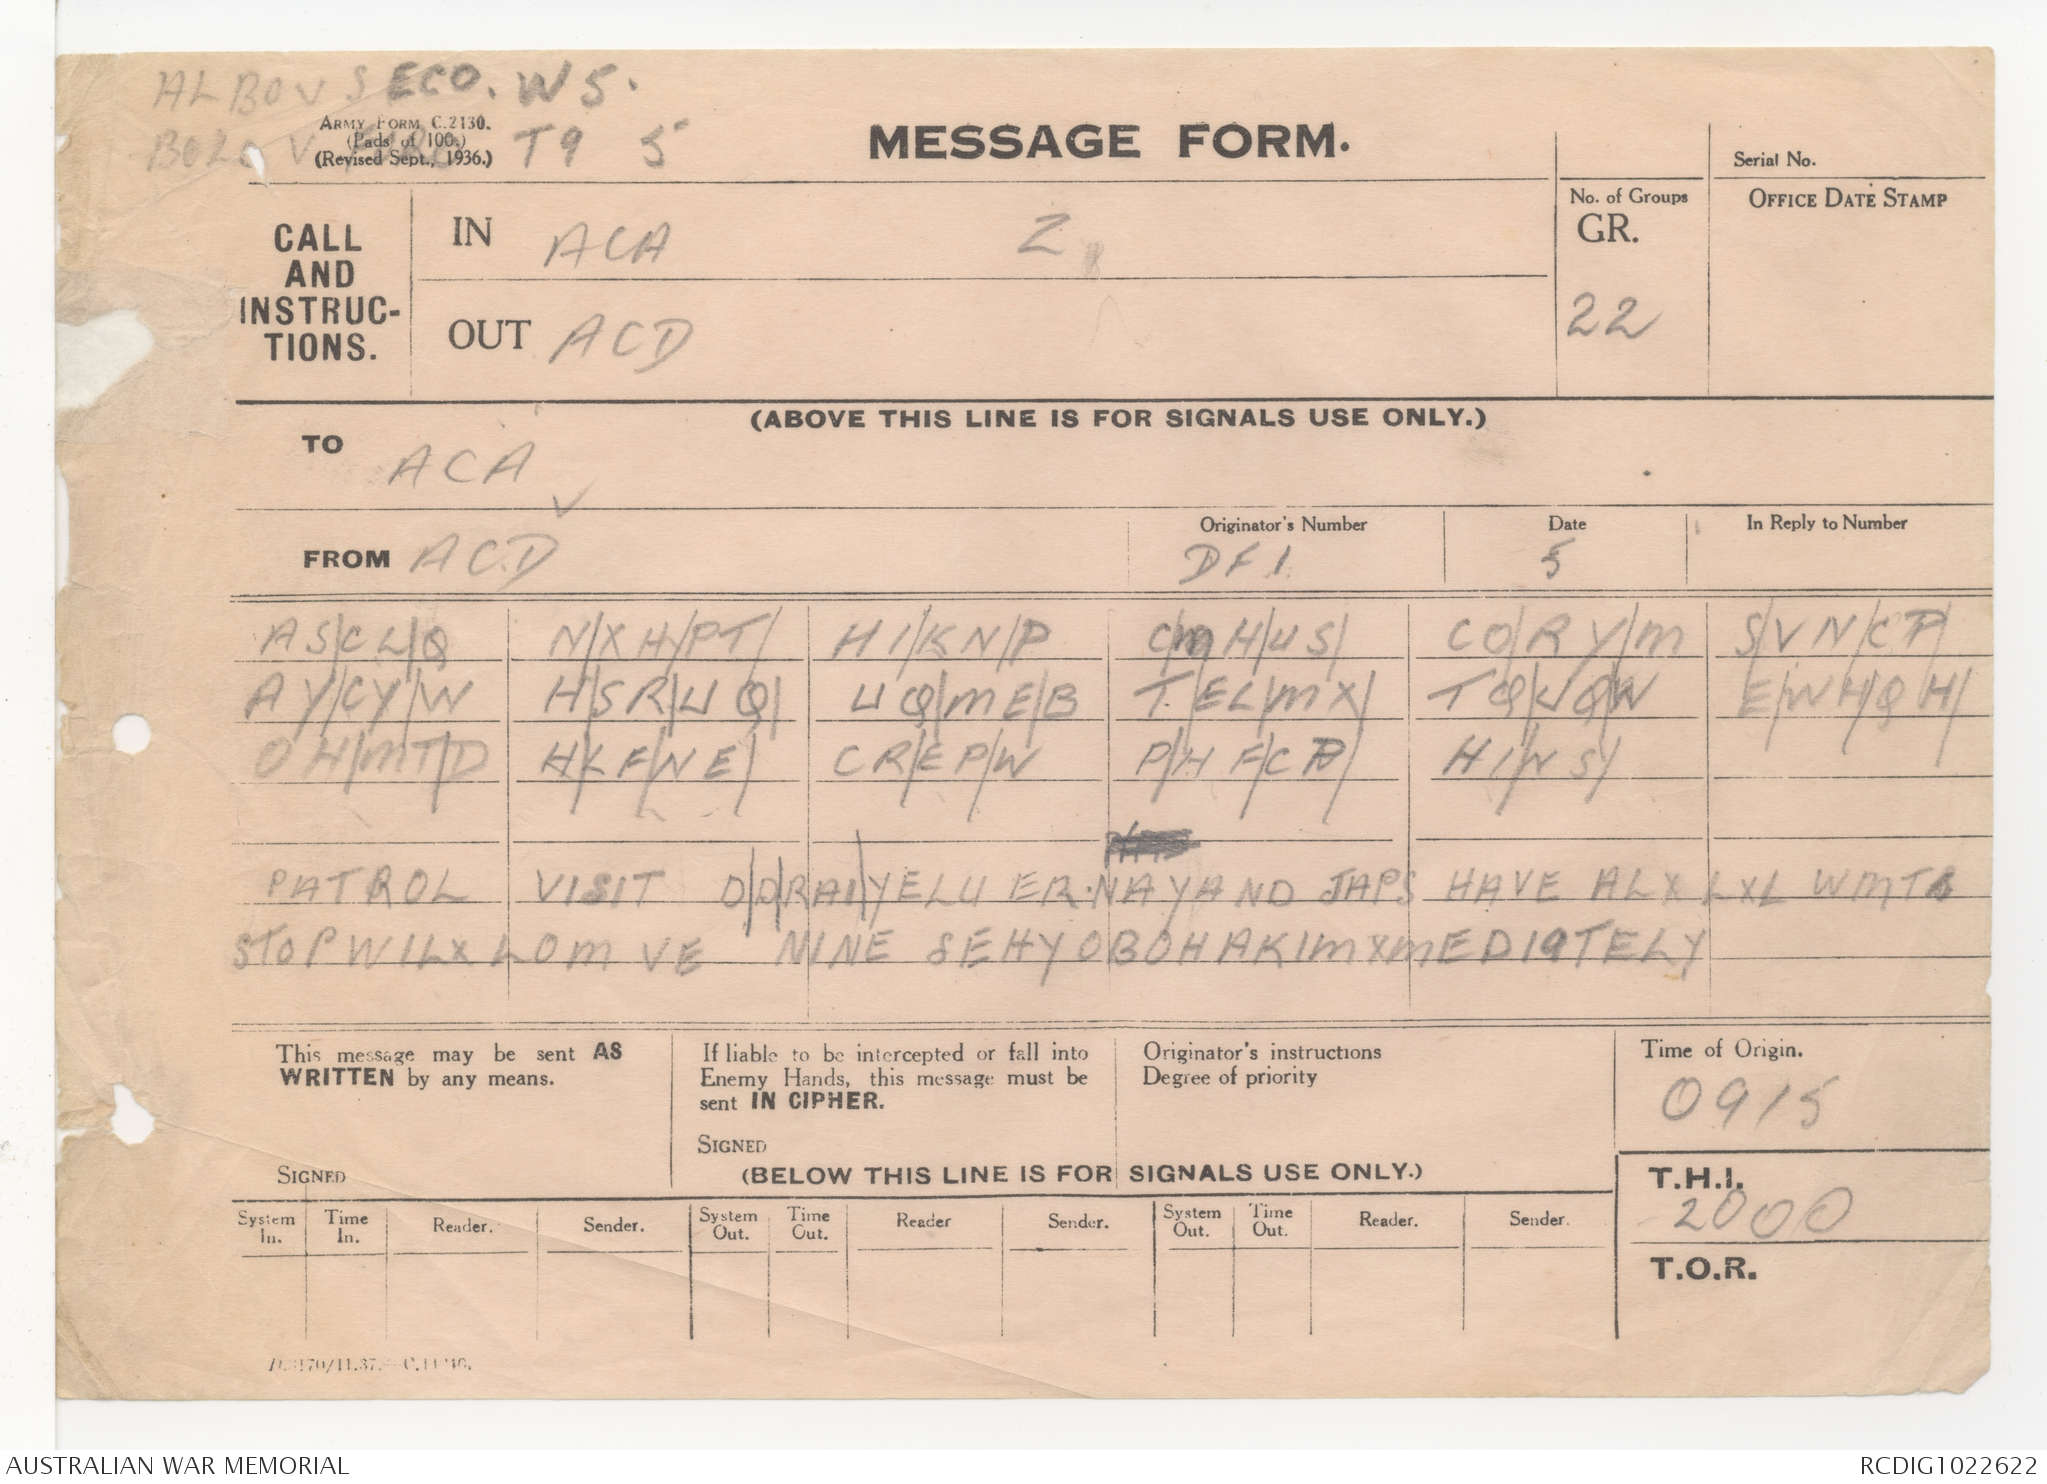 ALBOV SECO. W5.
ARMY FORM C.2130.
(Pads of 100.)
(Revised Sept., 1936.)
T9 5
MESSAGE FORM.
Serial No.
CALL AND INSTRUC-TIONS.
IN ACA Z
No. of Groups
GR. 22
OFFICE DATE STAMP
OUT ACD
(ABOVE THIS LINE IS FOR SIGNALS USE ONLY.)
TO ACA
FROM ACD
Originator's Number DF1.
Date 5
In Reply to Number
AS/CL/Q N/XH/PT/ HI/KN/P C/MH/US/ CO/RY/M S/VN/CP/
AY/CY/W H/SR/UQ/ UQ/ME/B T/EL/MX/ TQ/UQ/W E/WH/QH/
OH/MT/D H/KF/NE/ CR/EP/W P/HF/CP/ HI/NS/
PATROL VISIT D/D/RAI/YELU ER.NAYAND JAPS HAVE ALX LXL WMTS
STOP WILX LOM VE NINE SEHYOBOHAKIMXMEDIATELY
This message may be sent AS
WRITTEN by any means.
SIGNED
If liable to be intercepted or fall into
Enemy Hands, this message must be
sent IN CIPHER.
SIGNED
Originator's instructions
Degree of priority
Time of Origin.
0915
(BELOW THIS LINE IS FOR SIGNALS USE ONLY.)
T.H.I.
2000
T.O.R.
System In. Time In. Reader. Sender. System Out. Time Out. Reader Sender. System Out. Time Out. Reader. Sender.
AUSTRALIAN WAR MEMORIAL
RCDIG1022622